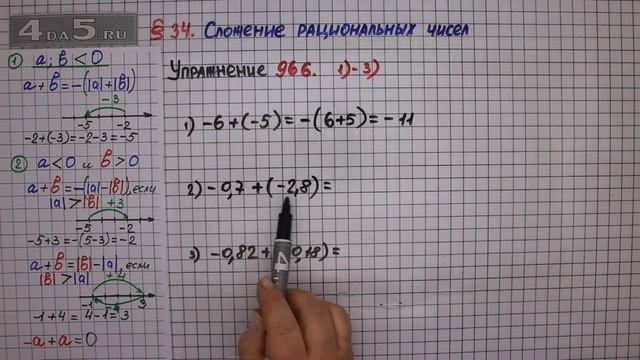 4DA5.RU
§ 34. Сложение рациональных чисел
1) a; b < 0
a + b = -(|a| + |b|)
-3
-5 -2
-2+(-3)=-2-3=-5
2) a < 0 и b > 0
a + b = -(|a| - |b|), если
|a| > |b| +3
-5 -2
-5+3=-(5-3)=-2
a + b = |b| - |a|, если
|b| > |a| +4
-1 3
-1+4=4-1=3
-a + a = 0
Упражнение 966. 1)-3)
1) -6+(-5)=-(6+5)=-11
2) -0,7+(-2,8)=
3) -0,82+ 0,18)=